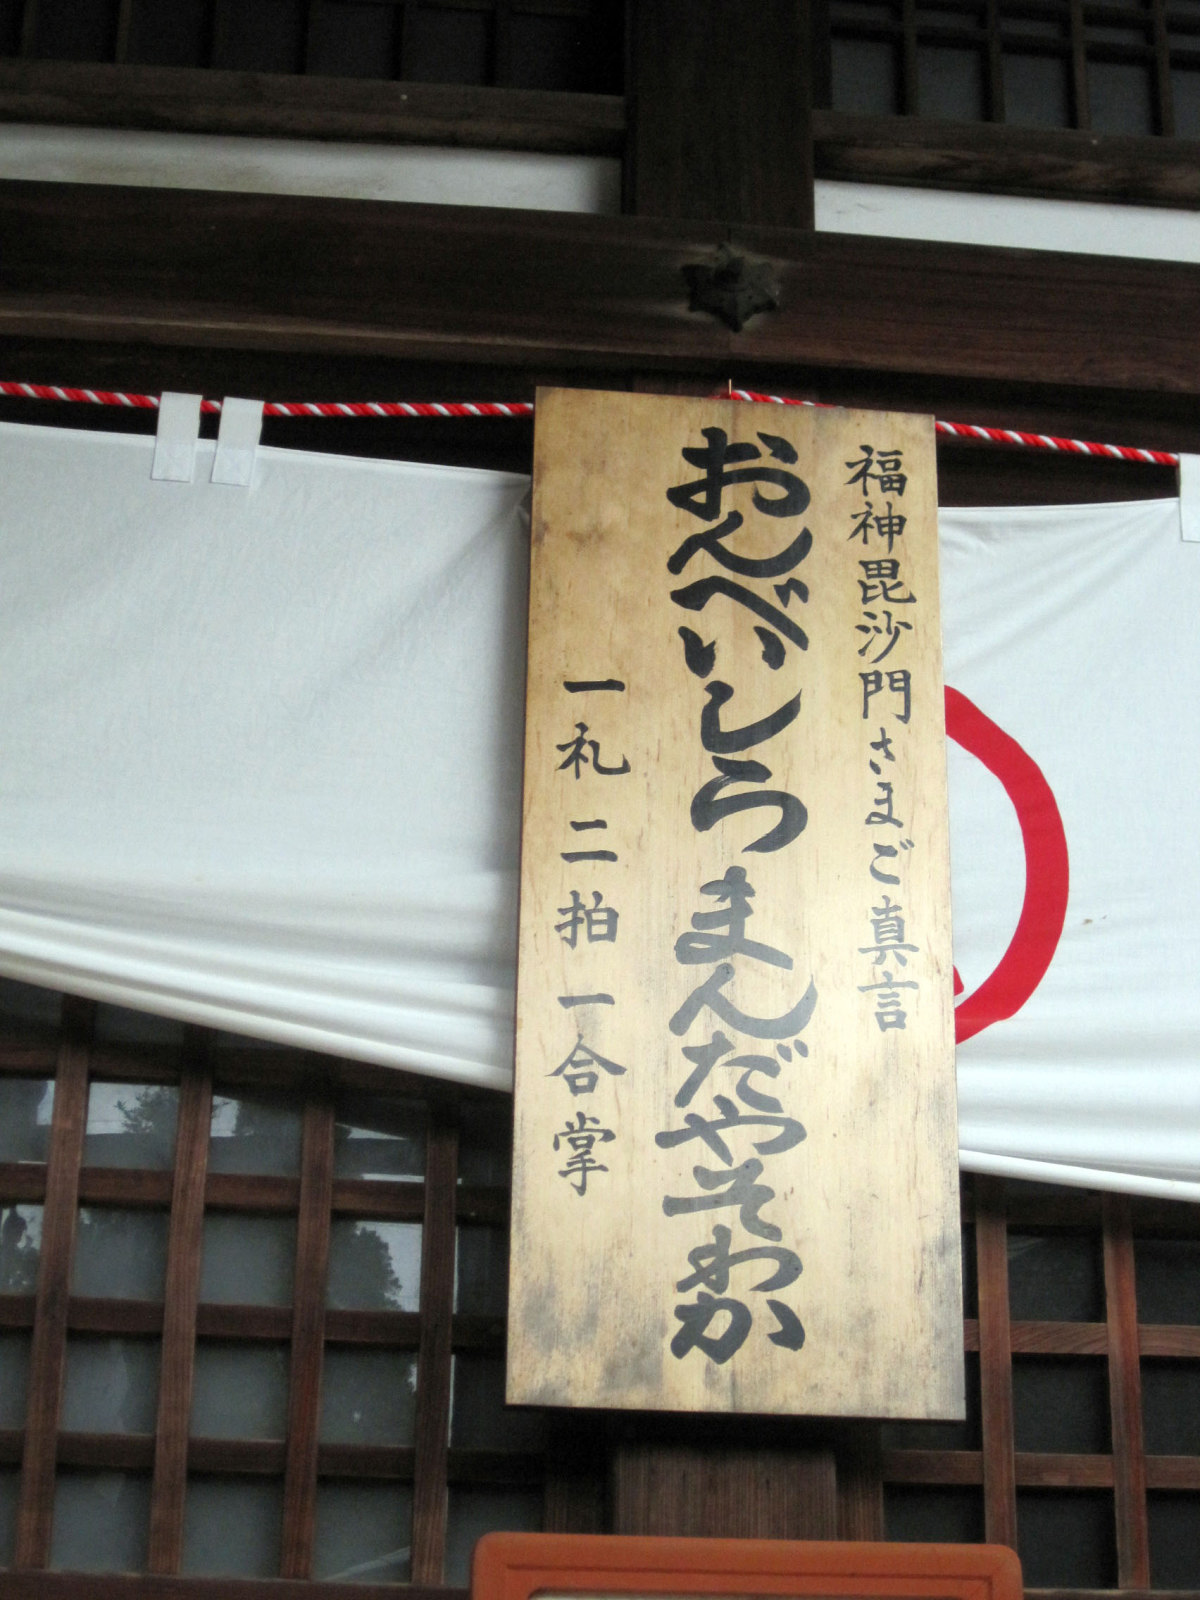 福神毘沙門さまご真言
おんべいしらまんだやそわか
一札 二拍 一合掌